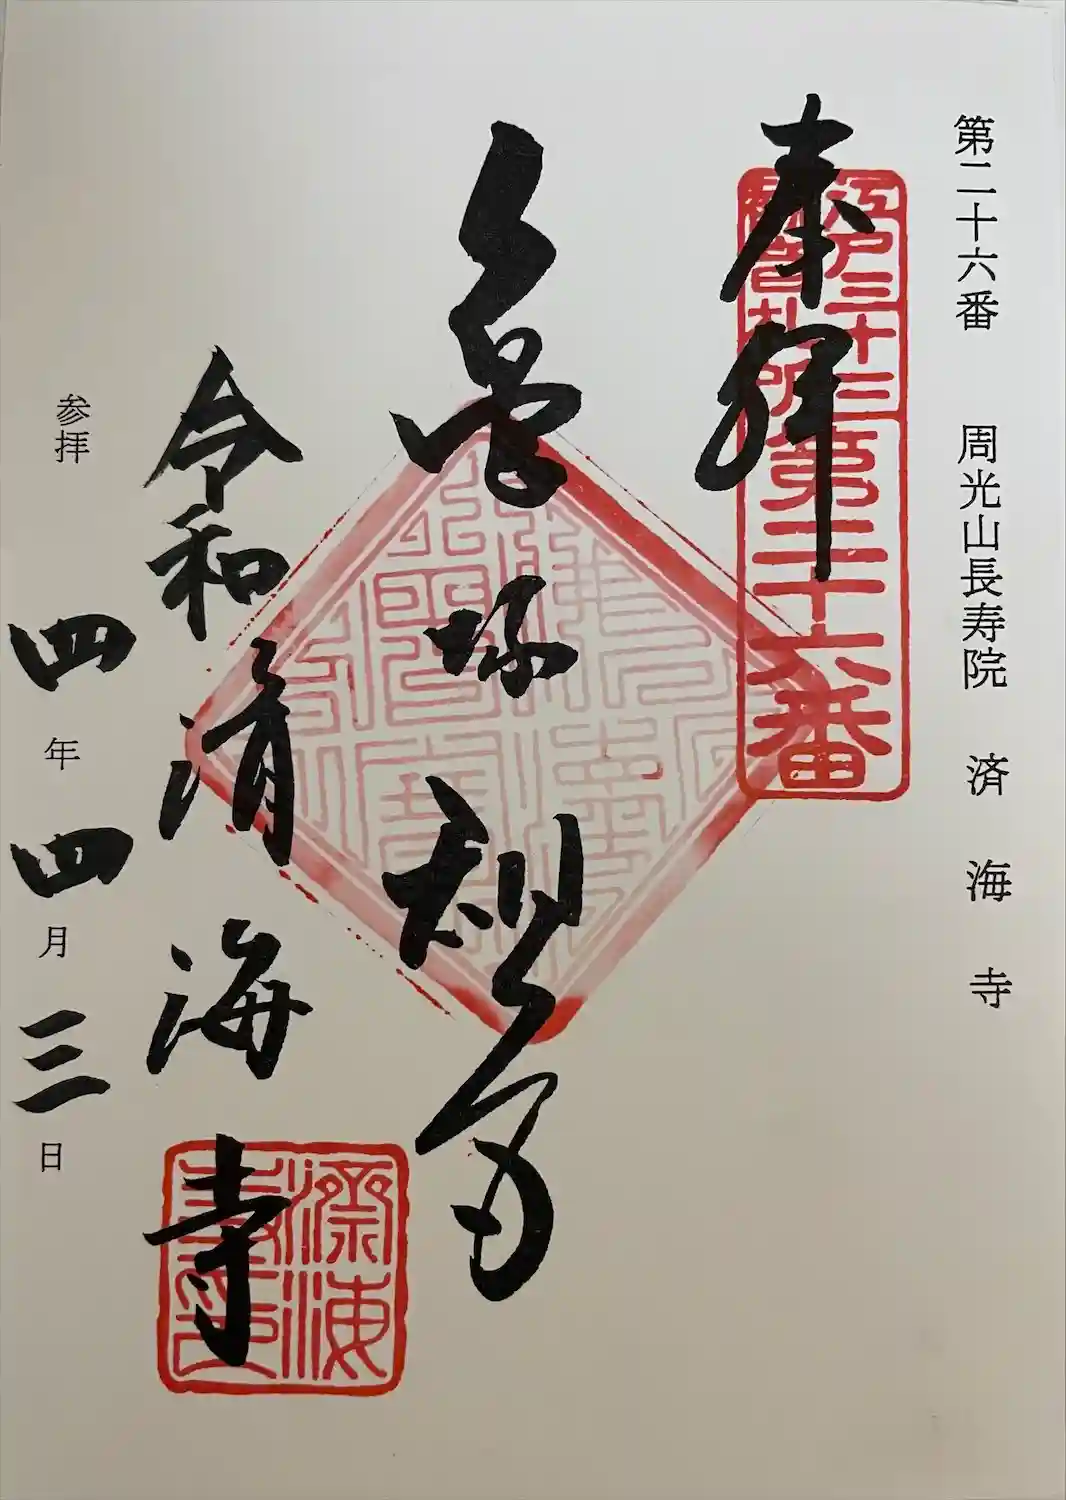 第二十六番 周光山長寿院 済海寺
奉拝
江戸三十三
観音札所
第二十六番
亀塚
令和
済海寺
済海
寺印
参拝
四年四月三日